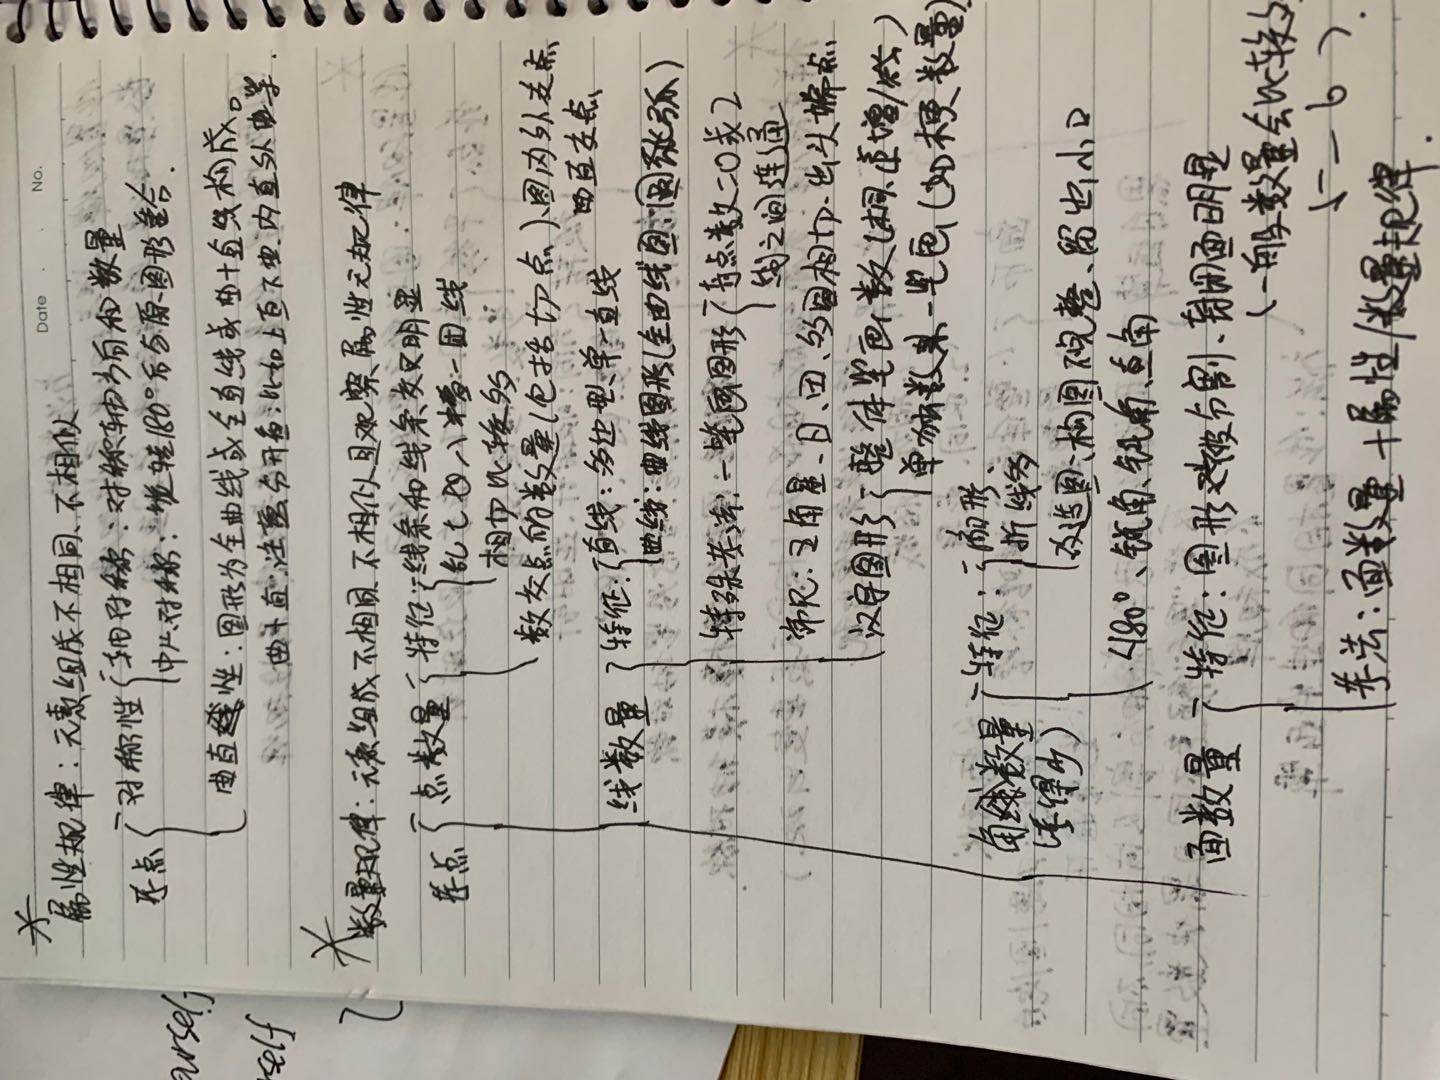 Date . . No.
属性规律：元素组成不相同、不相似
考点
对称性
轴对称：对称轴方向和数量
中心对称：旋转180°后与原图形重合.
曲直线性：图形为全曲线或全直线或曲+直线构成。
曲+直：注意分开看：比如上直下曲、内直外曲等.
数量规律：元素组成不相同、不相似且观察属性无规律
考点
点数量
特征：线条和线条交叉明显
乱七八糟一团线
相切比较多
数交点的数量(包括切点)、图内外交点
曲直交点
线数量
特征：
直线：多边型、单一直线
曲线：曲线图形(全曲线图：圆弧)
特殊考法：一笔画图形
奇点数=0或2
线之间连通
常见：五角星、日、田、多圆相切、出头端点
汉字图形
整体笔画数(相同、递增/减)
单独数某一笔画(如横数量)
角线数量
(考得少)
特征：
扇形、
折线多
改造图：构图不完整、留出小口
<180°、锐角、钝角、直角
面数量
特征：图形被分割、封闭面明显
(一般数量会比较多
5—6)
考法：面数量+属性/数量规律.
ourself
rself